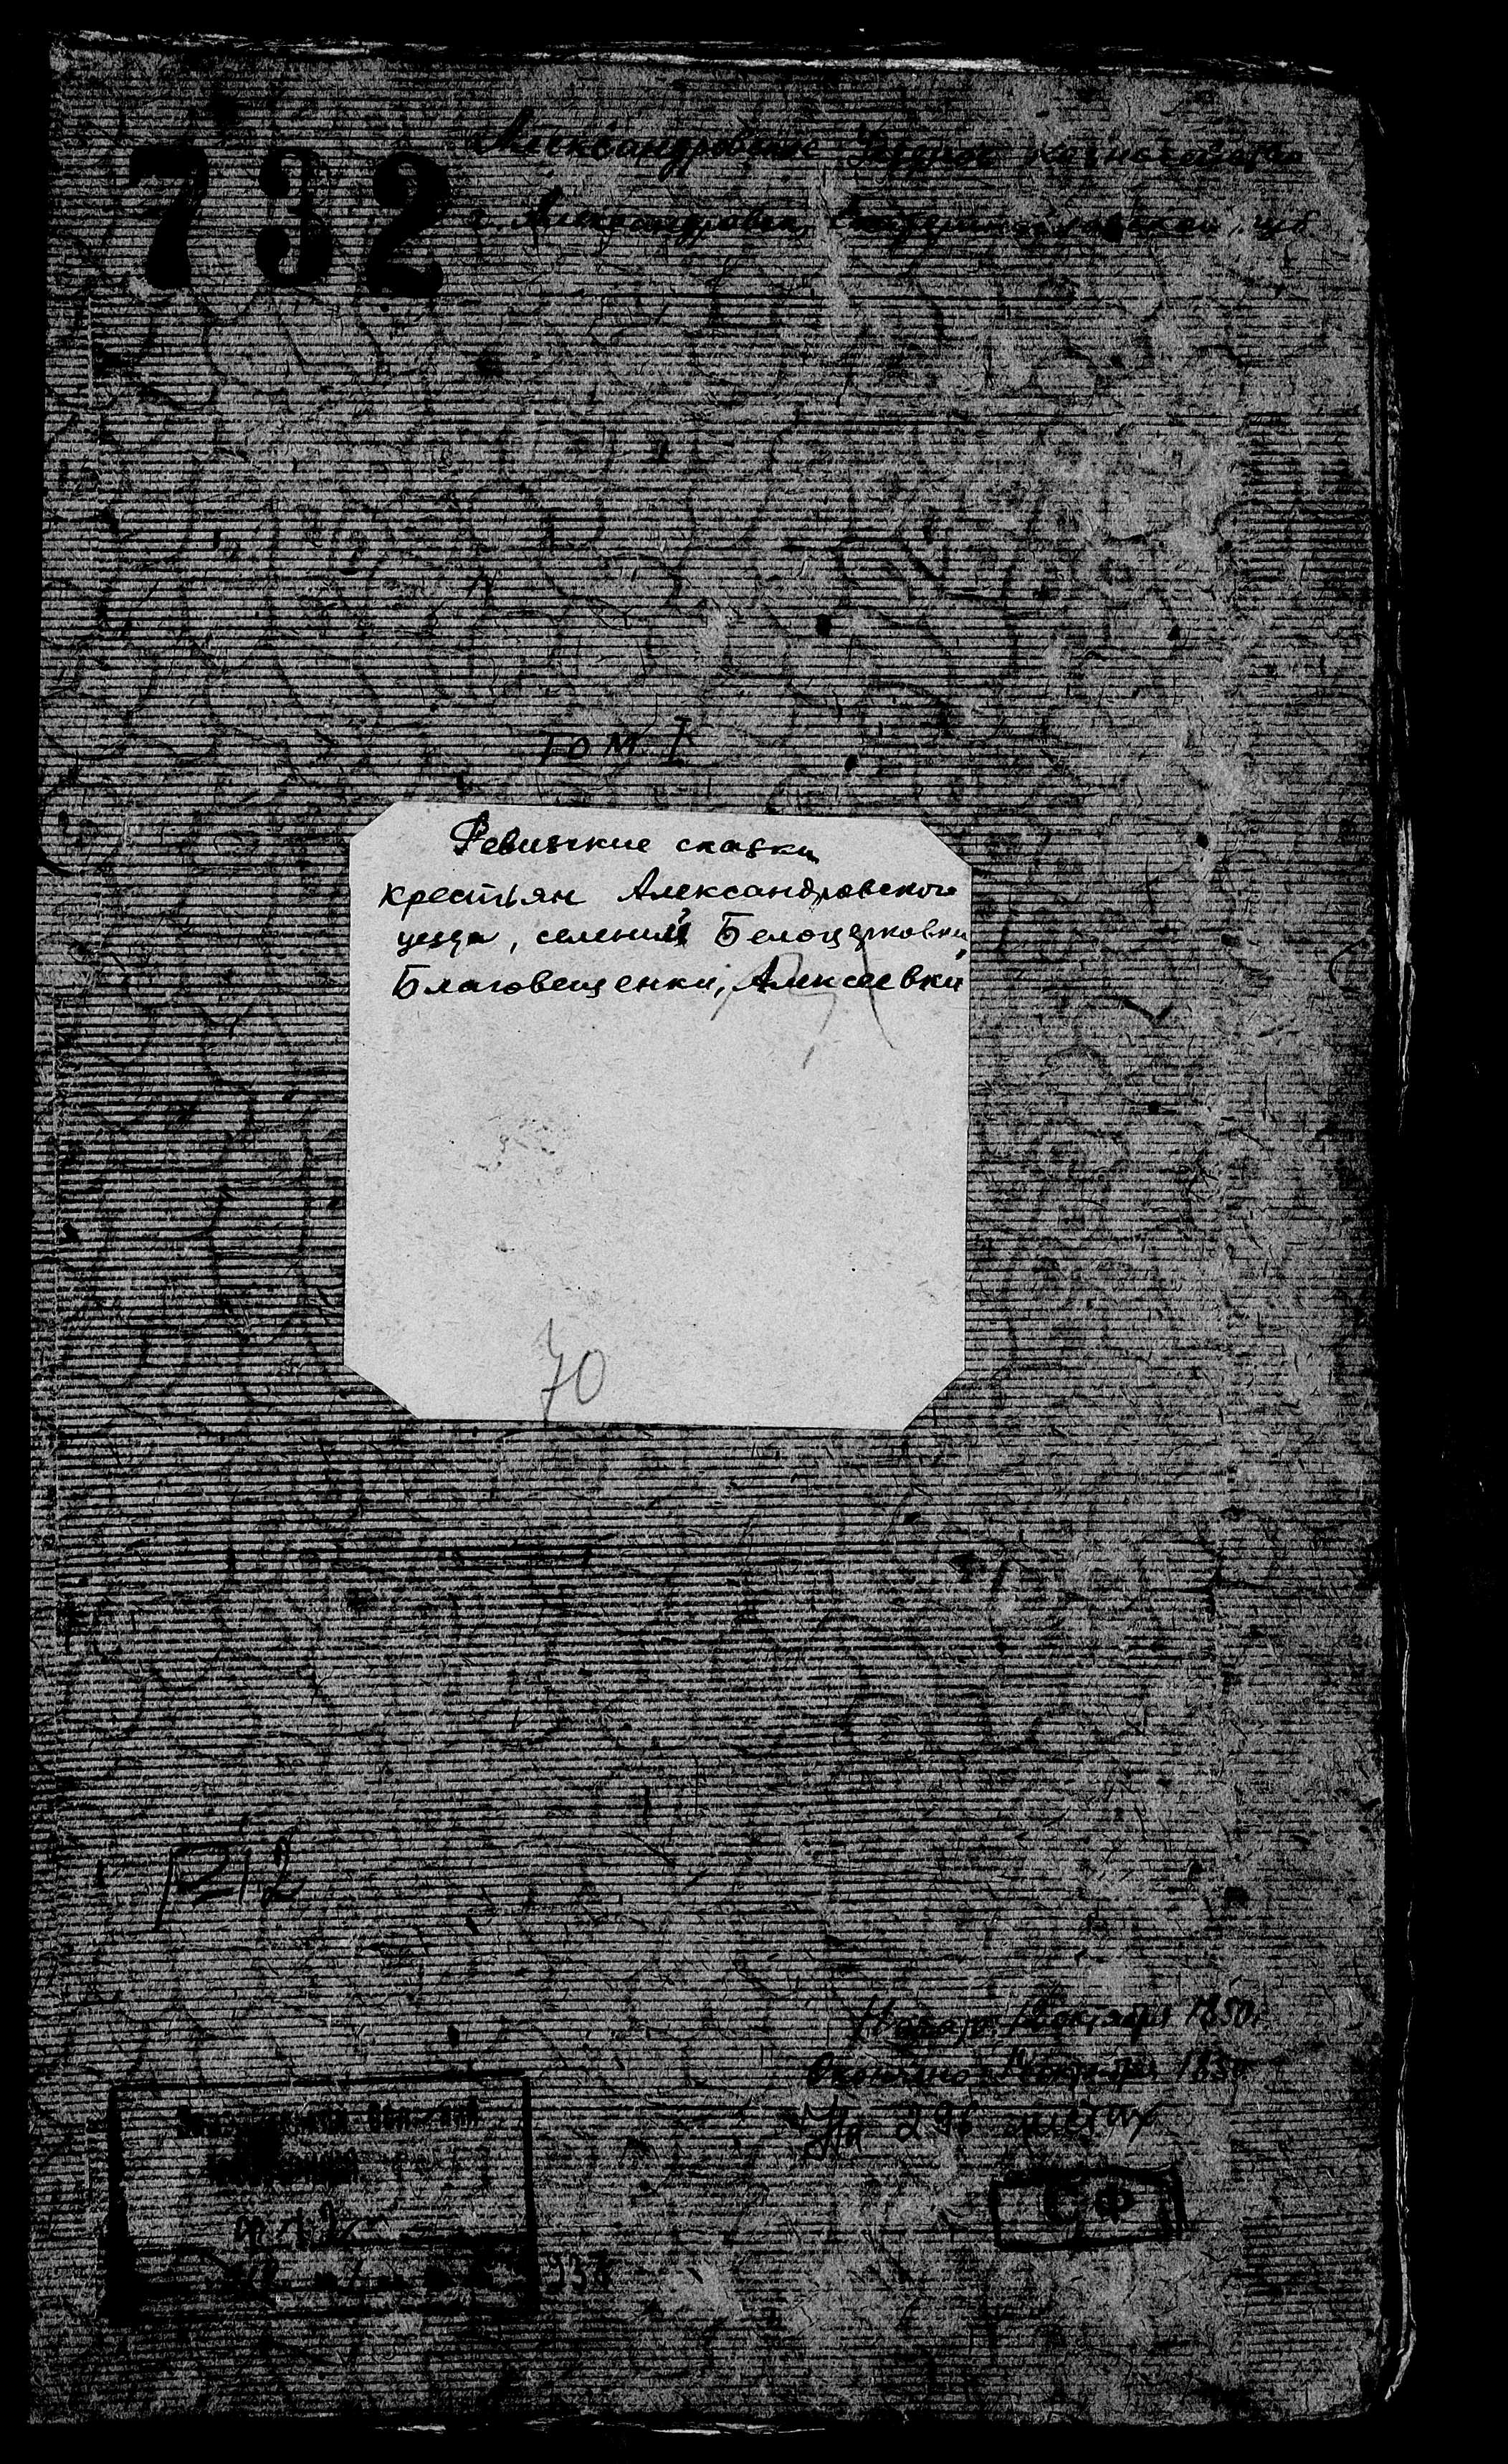 732
Александровское Уездное казначейство
г. Александровск, Екатеринославской губ
Том I
Ревизские сказки
крестьян Александровского
уезда, селений Белоцерковки
Благовещенки, Алексеевки
70
Р12
Начато: октября 1850г.
Окончено: октября 1850
На 296 листах
СФ